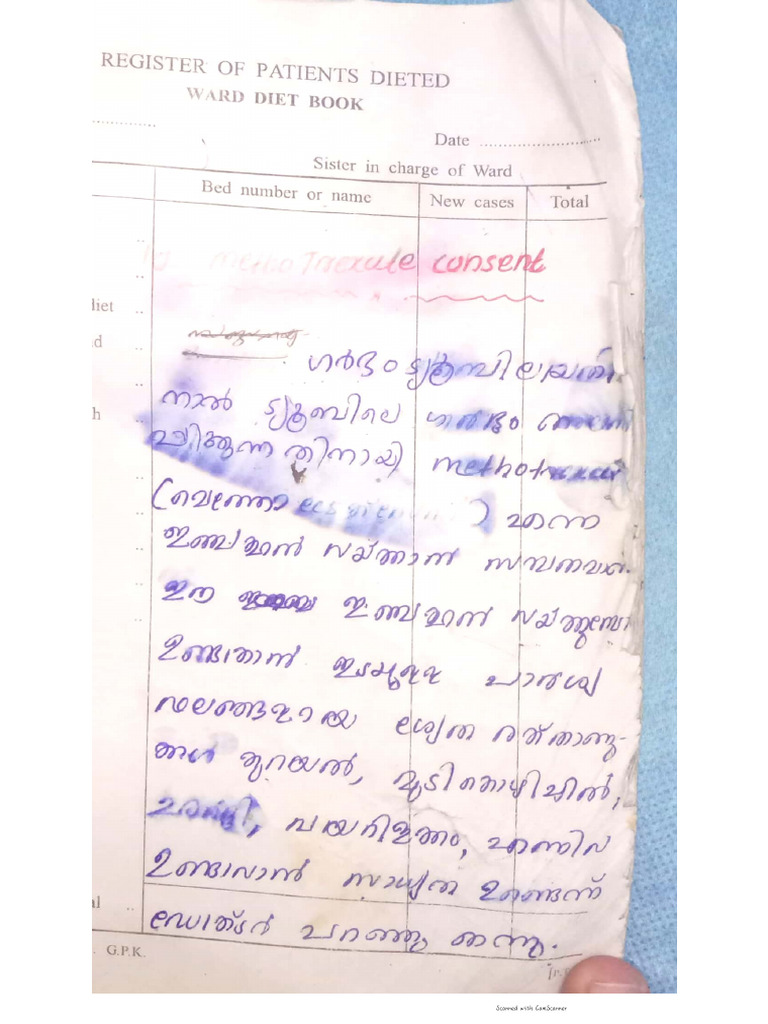 REGISTER OF PATIENTS DIETED
WARD DIET BOOK
Date
Sister in charge of Ward
Bed number or name New cases Total
consent
diet
d
h
ഗർഭം ട്യൂബിലായതി
നാൽ ട്യൂബിലെ ഗർഭം
പ്പിക്കുന്നതിനായി methotrexate
എന്ന
ഇഞ്ചക്ഷൻ വയ്ക്കാൻ സമ്മതമാണ്
ഈ ഇഞ്ചക്ഷൻ വയ്ക്കുമ്പോ
ഉണ്ടാകാൻ ഇടയുള്ള പാർശ്വ
ഫലങ്ങളായ ശ്വേത രക്താണു-
ക്കൾ കുറയൽ, മുടികൊഴിച്ചിൽ,
വയറിളക്കം, എന്നിവ
ഉണ്ടാവാൻ സാധ്യത ഉണ്ടെന്ന്
ഡോക്ടർ പറഞ്ഞു തന്നു.
al
G.P.K.
Scanned with CamScanner